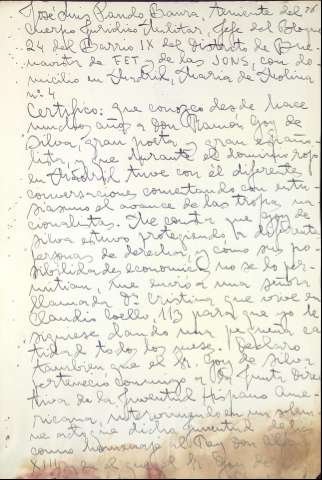 José Luis Pando Baura, teniente del
Cuerpo Jurídico Militar, Jefe del Bloque
24 del Barrio IX del Distrito de Bue-
navista de FET y de las JONS, con do-
micilio en Madrid, María de Molina
nº 4
Certifico: que conozco desde hace
muchos años a don Ramón Goy de
Silva, gran poeta y gran españo-
lista, y que durante el dominio rojo
en Madrid tuve con él diferentes
conversaciones comentando con entu-
siasmo el avance de las tropas na-
cionalistas. Me consta que Goy de
Silva estuvo protegiendo a diferentes
personas de derechas, y cómo sus po-
sibilidades económicas no se lo per-
mitían, me envió a una señora
llamada Dª Cristina que vive en
Claudio Coello, 113 para que yo le
siguiese dando una pequeña can-
tidad todos los meses. Declaro
también que el Sr. Goy de Silva
perteneció conmigo a la Junta Direc-
tiva de la Juventud Hispano Ame-
ricana, interviniendo en un solem-
ne acto que dicha Juventud
como homenaje al Rey don Alfonso
XIII en el que el Sr. Goy de